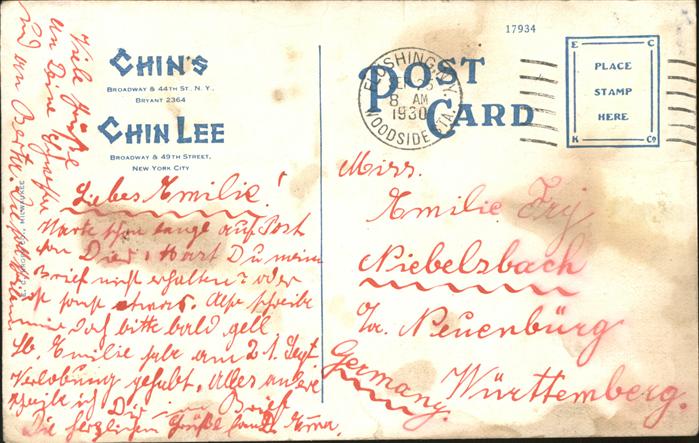 CHIN'S
BROADWAY & 44TH ST. N.Y.
BRYANT 2364
CHIN LEE
BROADWAY & 49TH STREET,
NEW YORK CITY
17934
POST
CARD
FLUSHING, N.Y.
8 AM
1930
WOODSIDE STA.
E C
PLACE
STAMP
HERE
K Co
Viele Grüße
an Deine
und von
Liebes Emilie!
Warte schon lange auf Post
von Dier, Hast Du mein
Brief nicht erhalten? oder
ist sonst etwas. Also schreibe
mir doch bitte bald gell
Lb. Emilie habe am 21. Sept
Verlobung gehabt. Alles andere
schreibe ich Dir im Brief
Die herzlichen Grüße Emma.
Miss.
Emilie
Niebelsbach
Neuenbürg
Württemberg.
Germany.